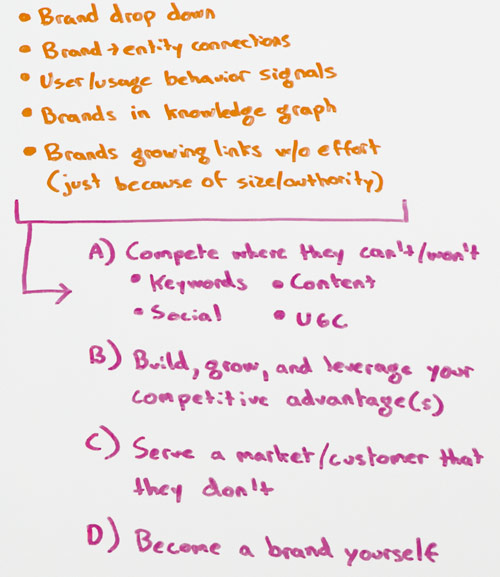 • Brand drop down
• Brand → entity connections
• User/usage behavior signals
• Brands in knowledge graph
• Brands growing links w/o effort
(just because of size/authority)
A) Compete where they can't/won't
• Keywords • Content
• Social • UGC
B) Build, grow, and leverage your
competitive advantage(s)
C) Serve a market/customer that
they don't
D) Become a brand yourself